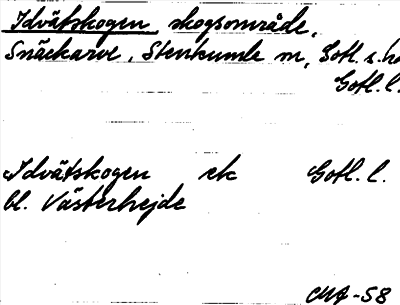 Idvätskogen, skogsområde,
Snäckarve, Stenkumle m, Gotl. s. hd
Gotl. l.
Idvätskogen ek Gotl. l.
bl. Västerhejde
CMA-58